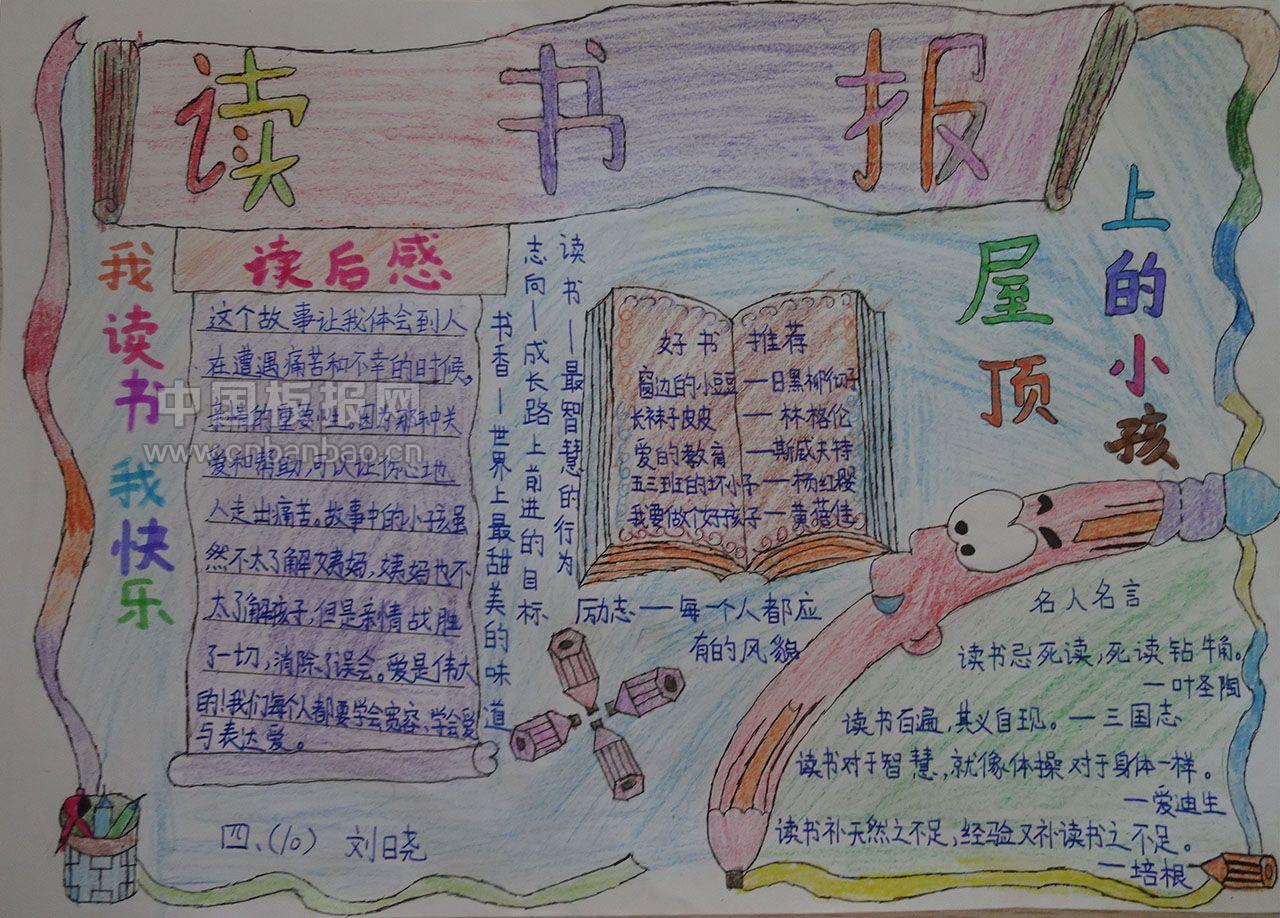 读书报
我读书 我快乐
读后感
这个故事让我体会到人
在遭遇痛苦和不幸的时候,
亲情的重要性。因为那种关
爱和帮助,可以让伤心地
人走出痛苦。故事中的小孩虽
然不太了解姨妈,姨妈也不
太了解孩子,但是亲情战胜
了一切,消除了误会。爱是伟大
的!我们每个人都要学会宽容,学会爱
与表达爱。
四、(10) 刘日晓
读书—最智慧的行为
志向—成长路上前进的目标
书香—世界上最甜美的味道
好书 推荐
窗边的小豆豆—日黑柳彻子
长袜子皮皮—林格伦
爱的教育—斯威夫特
五三班的坏小子—杨红樱
我要做个好孩子—黄蓓佳
励志—每一个人都应
有的风貌
屋顶
上的小孩
名人名言
读书忌死读,死读钻牛角。
—叶圣陶
读书百遍,其义自现。—三国志
读书对于智慧,就像体操对于身体一样。
—爱迪生
读书补天然之不足,经验又补读书之不足。
—培根
中国板报网
www.cnbanbao.cn